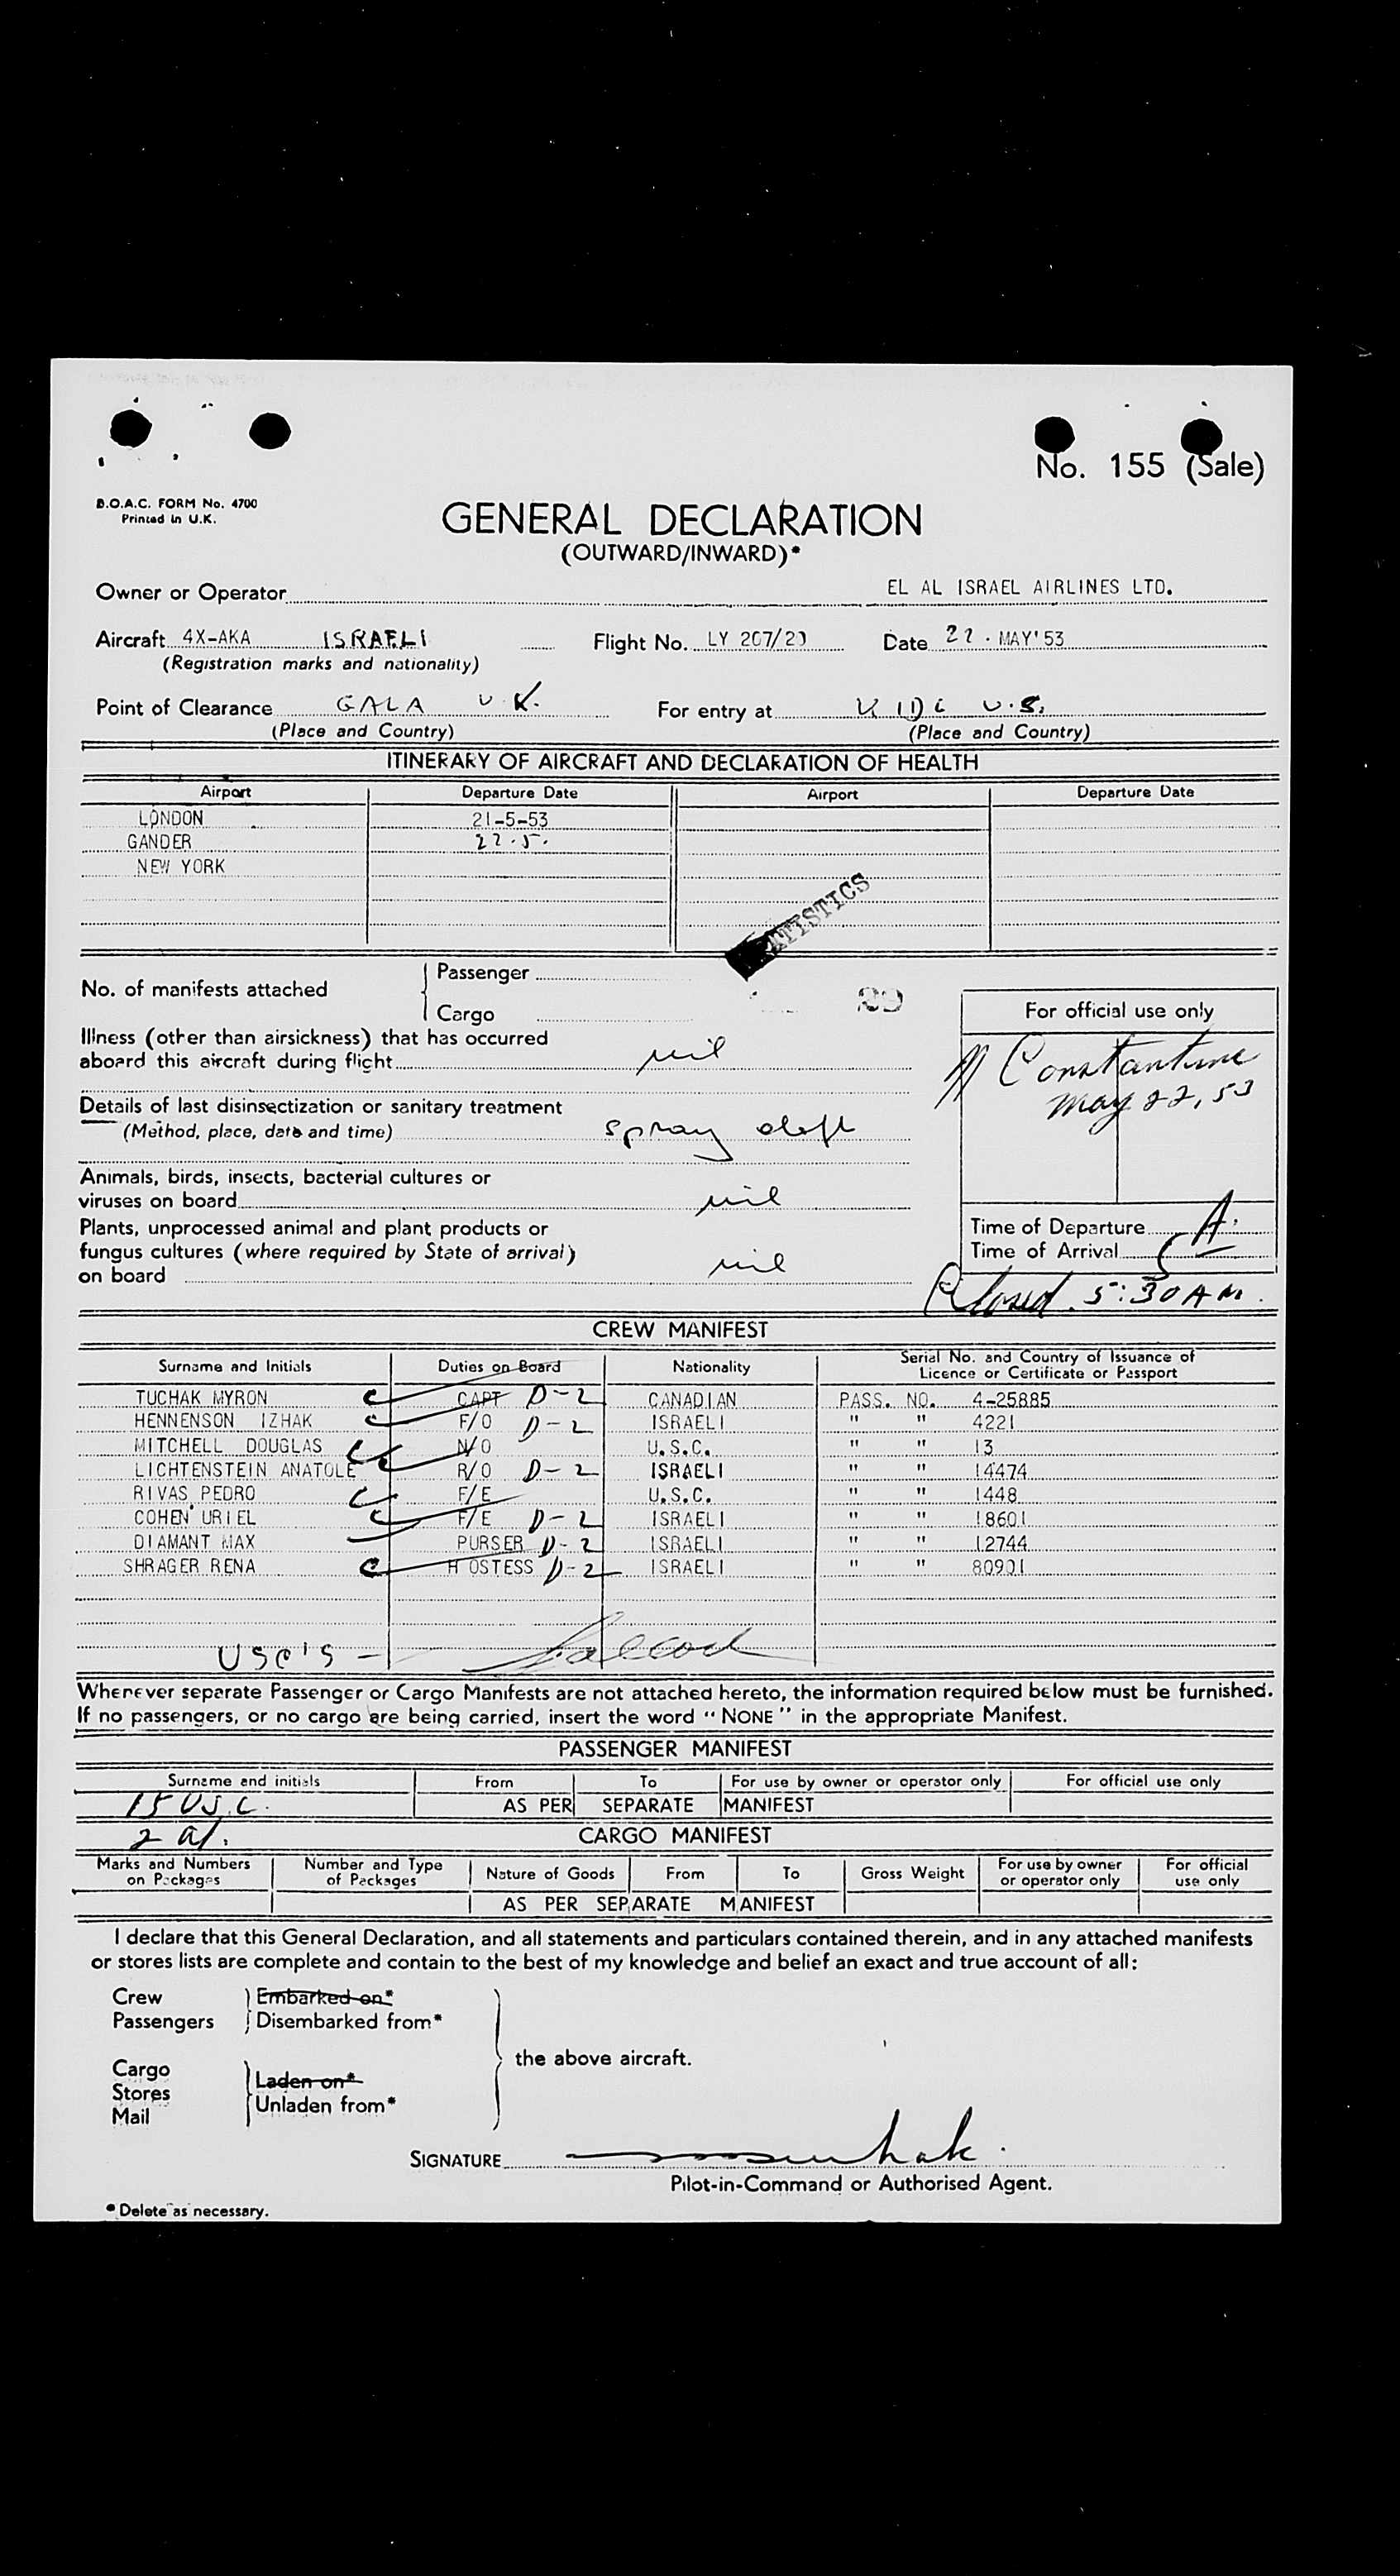 No. 155 (Sale)
B.O.A.C. FORM No. 4700
Printed in U.K.
GENERAL DECLARATION
(OUTWARD/INWARD)*
Owner or Operator EL AL ISRAEL AIRLINES LTD.
Aircraft 4X-AKA ISRAELI Flight No. LY 207/20 Date 22 . MAY'53
(Registration marks and nationality)
Point of Clearance GALA U.K. For entry at U.S.
(Place and Country) (Place and Country)
ITINERARY OF AIRCRAFT AND DECLARATION OF HEALTH
Airport Departure Date Airport Departure Date
LONDON 21-5-53
GANDER 22.5.
NEW YORK
No. of manifests attached
Passenger
Cargo
29
For official use only
Illness (other than airsickness) that has occurred
aboard this aircraft during flight nil
Constantine
May 22, 53
Details of last disinsectization or sanitary treatment
(Method, place, date and time) spray
Animals, birds, insects, bacterial cultures or
viruses on board nil
Plants, unprocessed animal and plant products or
fungus cultures (where required by State of arrival)
on board nil
Time of Departure A.
Time of Arrival
Closed. 5:30 AM.
CREW MANIFEST
Surname and Initials Duties on Board Nationality Serial No. and Country of Issuance of
Licence or Certificate or Passport
TUCHAK MYRON C CAPT D-2 CANADIAN PASS. NO. 4-25885
HENNENSON IZHAK C F/O D-2 ISRAELI " " 4221
MITCHELL DOUGLAS C N/O U.S.C. " " 13
LICHTENSTEIN ANATOLE C R/O D-2 ISRAELI " " 14474
RIVAS PEDRO C F/E U.S.C. " " 1448
COHEN URIEL C F/E D-2 ISRAELI " " 18601
DIAMANT MAX PURSER D-2 ISRAELI " " 12744
SHRAGER RENA C H OSTESS D-2 ISRAELI " " 80901
USC'S -
Whenever separate Passenger or Cargo Manifests are not attached hereto, the information required below must be furnished.
If no passengers, or no cargo are being carried, insert the word "NONE" in the appropriate Manifest.
PASSENGER MANIFEST
Surname and initials From To For use by owner or operator only For official use only
15 US.C. AS PER SEPARATE MANIFEST
2 al.
CARGO MANIFEST
Marks and Numbers on Packages Number and Type of Packages Nature of Goods From To Gross Weight For use by owner or operator only For official use only
AS PER SEPARATE MANIFEST
I declare that this General Declaration, and all statements and particulars contained therein, and in any attached manifests
or stores lists are complete and contain to the best of my knowledge and belief an exact and true account of all:
Crew Embarked on*
Passengers Disembarked from*
the above aircraft.
Cargo
Stores Laden on*
Mail Unladen from*
SIGNATURE
Pilot-in-Command or Authorised Agent.
* Delete as necessary.